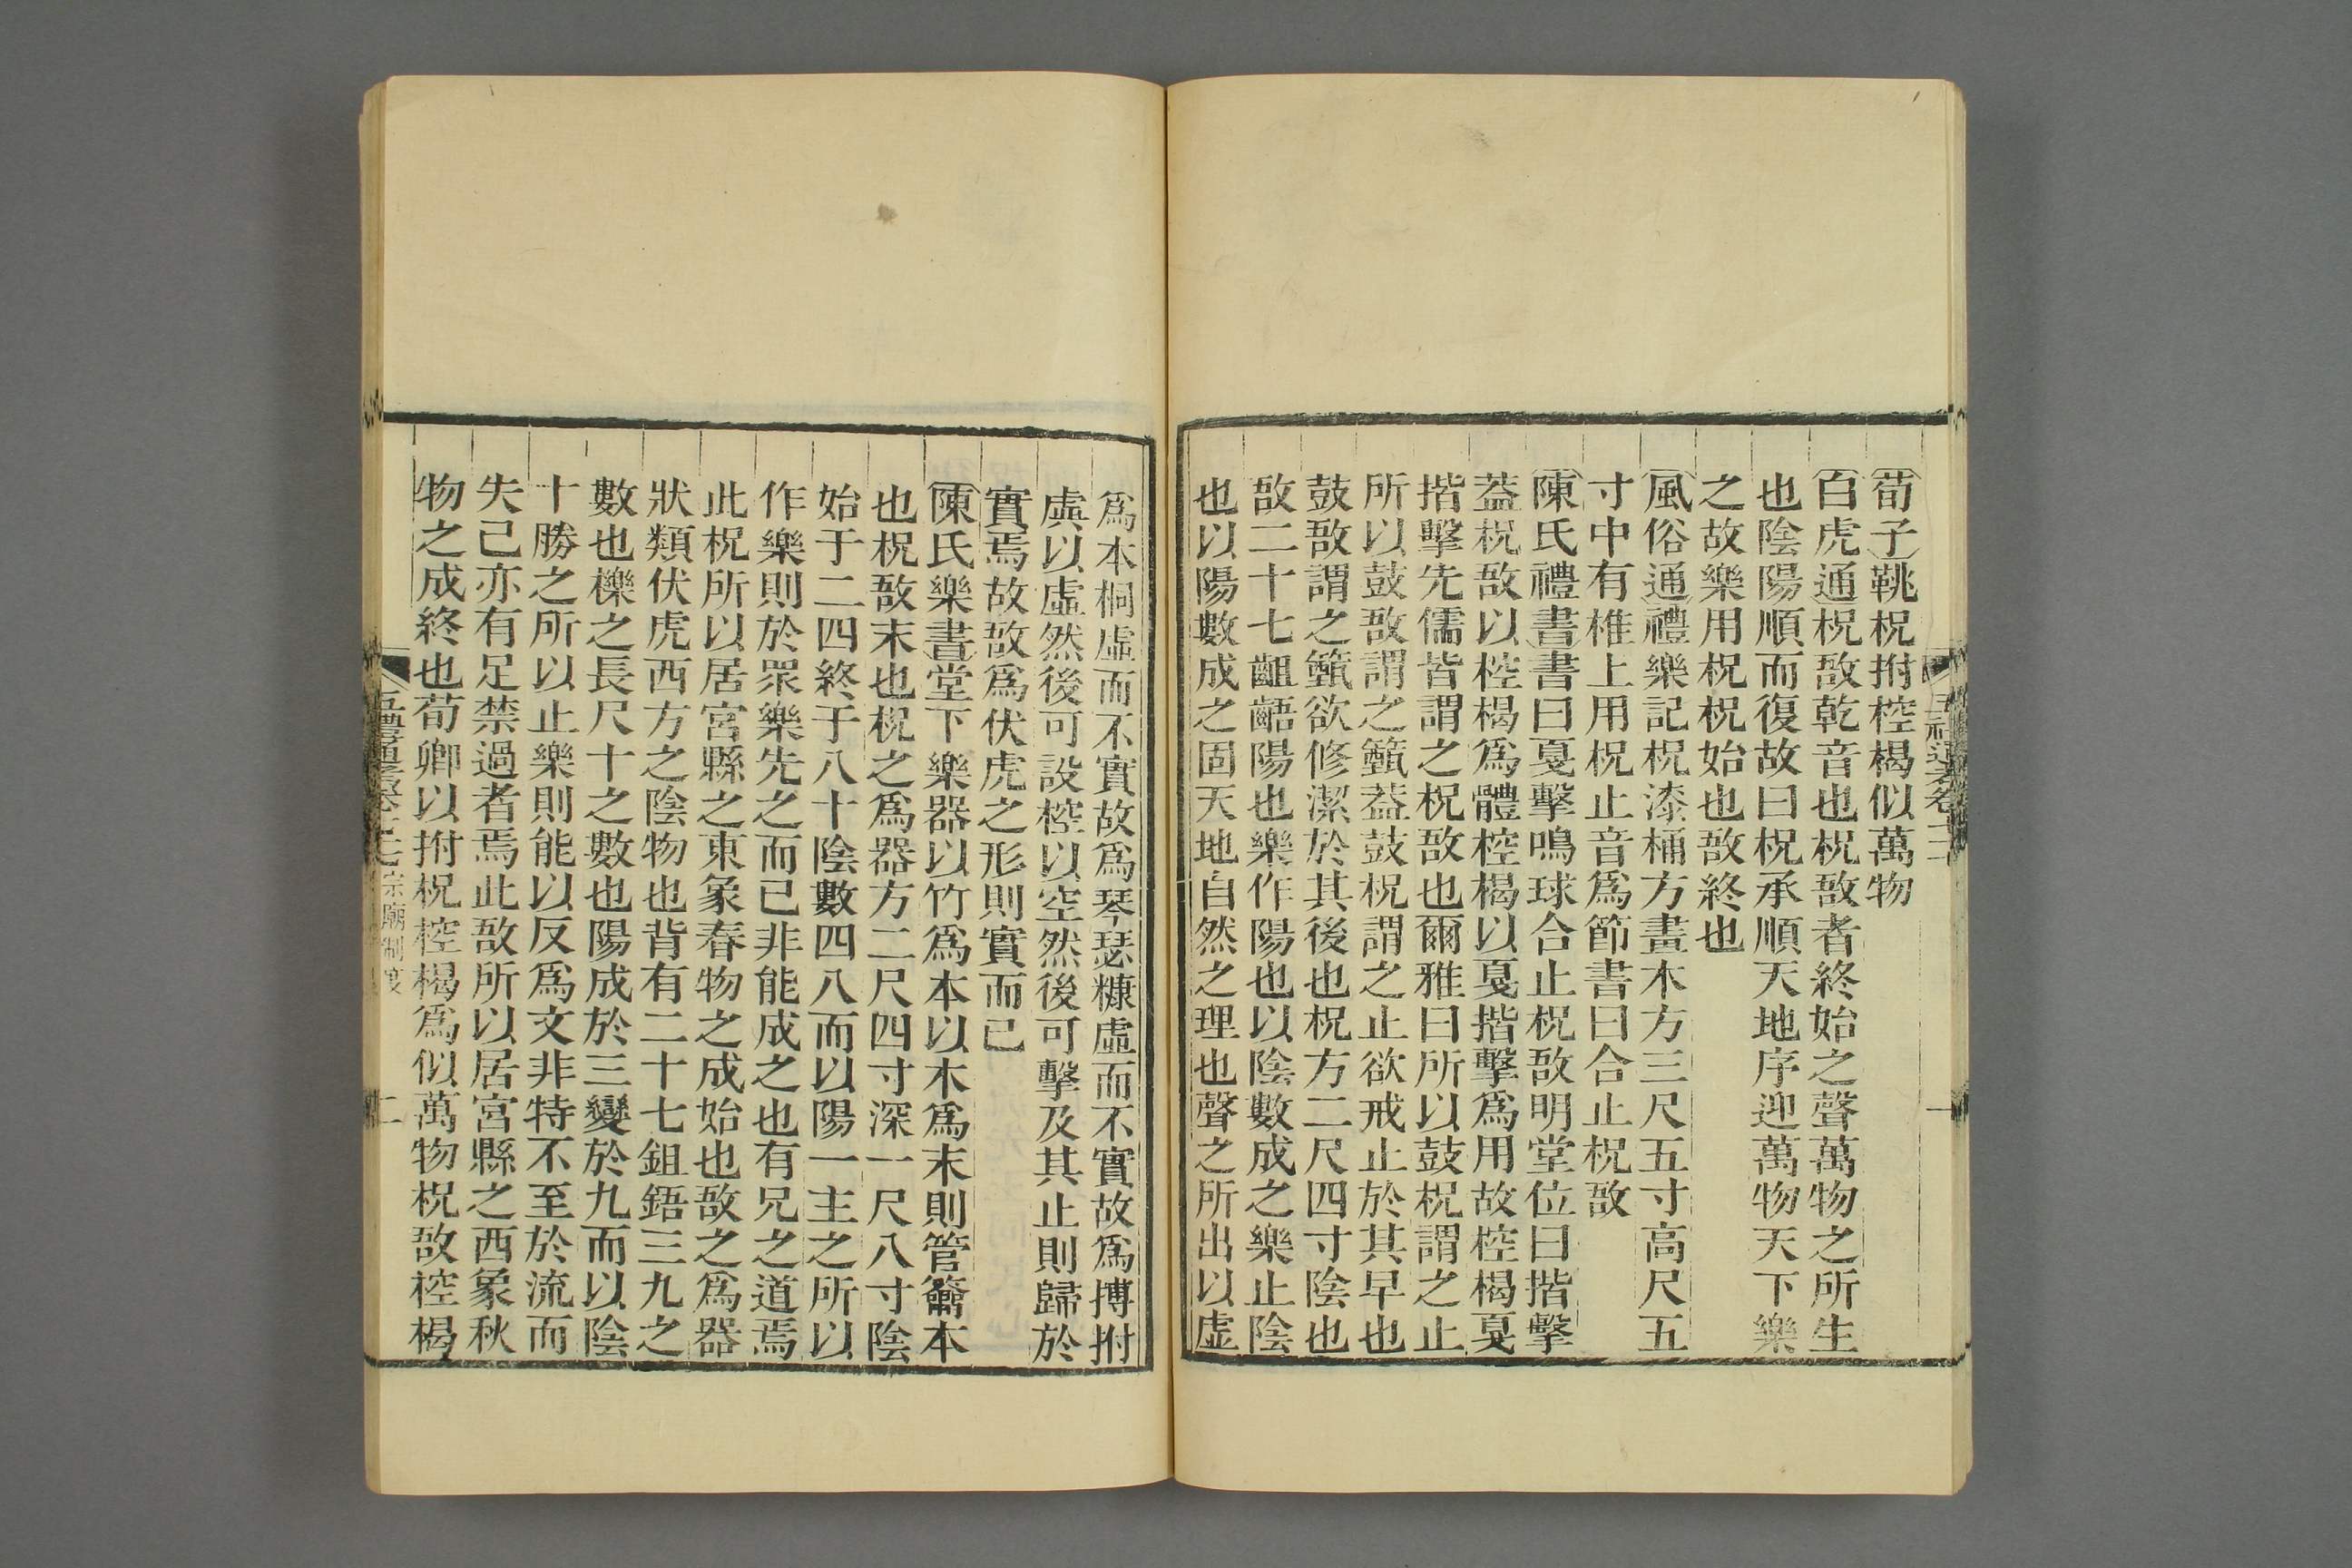 荀子鞉柷拊椌楬似萬物
白虎通柷敔乾音也柷敔者終始之聲萬物之所生
也陰陽順而復故曰柷承順天地序迎萬物天下樂
之故樂用柷柷始也敔終也
風俗通禮樂記柷漆桶方畫木方三尺五寸高尺五
寸中有椎上用柷止音爲節書曰合止柷敔
陳氏禮書書曰戛擊鳴球合止柷敔明堂位曰揩擊
葢柷敔以椌楬爲體椌楬以戛揩擊爲用故椌楬戛
揩擊先儒皆謂之柷敔也爾雅曰所以鼓柷謂之止
所以鼓敔謂之籈葢鼓柷謂之止欲戒止於其早也
鼓敔謂之籈欲修潔於其後也柷方二尺四寸陰也
敔二十七齟齬陽也樂作陽也以陰數成之樂止陰
也以陽數成之固天地自然之理也聲之所出以虛
爲本桐虛而不實故爲琴瑟糠虛而不實故爲搏拊
虡以虛然後可設椌以空然後可擊及其止則歸於
實焉故敔爲伏虎之形則實而已
陳氏樂書堂下樂器以竹爲本以木爲末則管籥本
也柷敔末也柷之爲器方二尺四寸深一尺八寸陰
始于二四終于八十陰數四八而以陽一主之所以
作樂則於眾樂先之而已非能成之也有兄之道焉
此柷所以居宮縣之東象春物之成始也敔之爲器
狀類伏虎西方之陰物也背有二十七鉏鋙三九之
數也櫟之長尺十之數也陽成於三變於九而以陰
十勝之所以止樂則能以反爲文非特不至於流而
失己亦有足禁過者焉此敔所以居宮縣之西象秋
物之成終也荀卿以拊柷椌楬爲似萬物柷敔椌楬
二